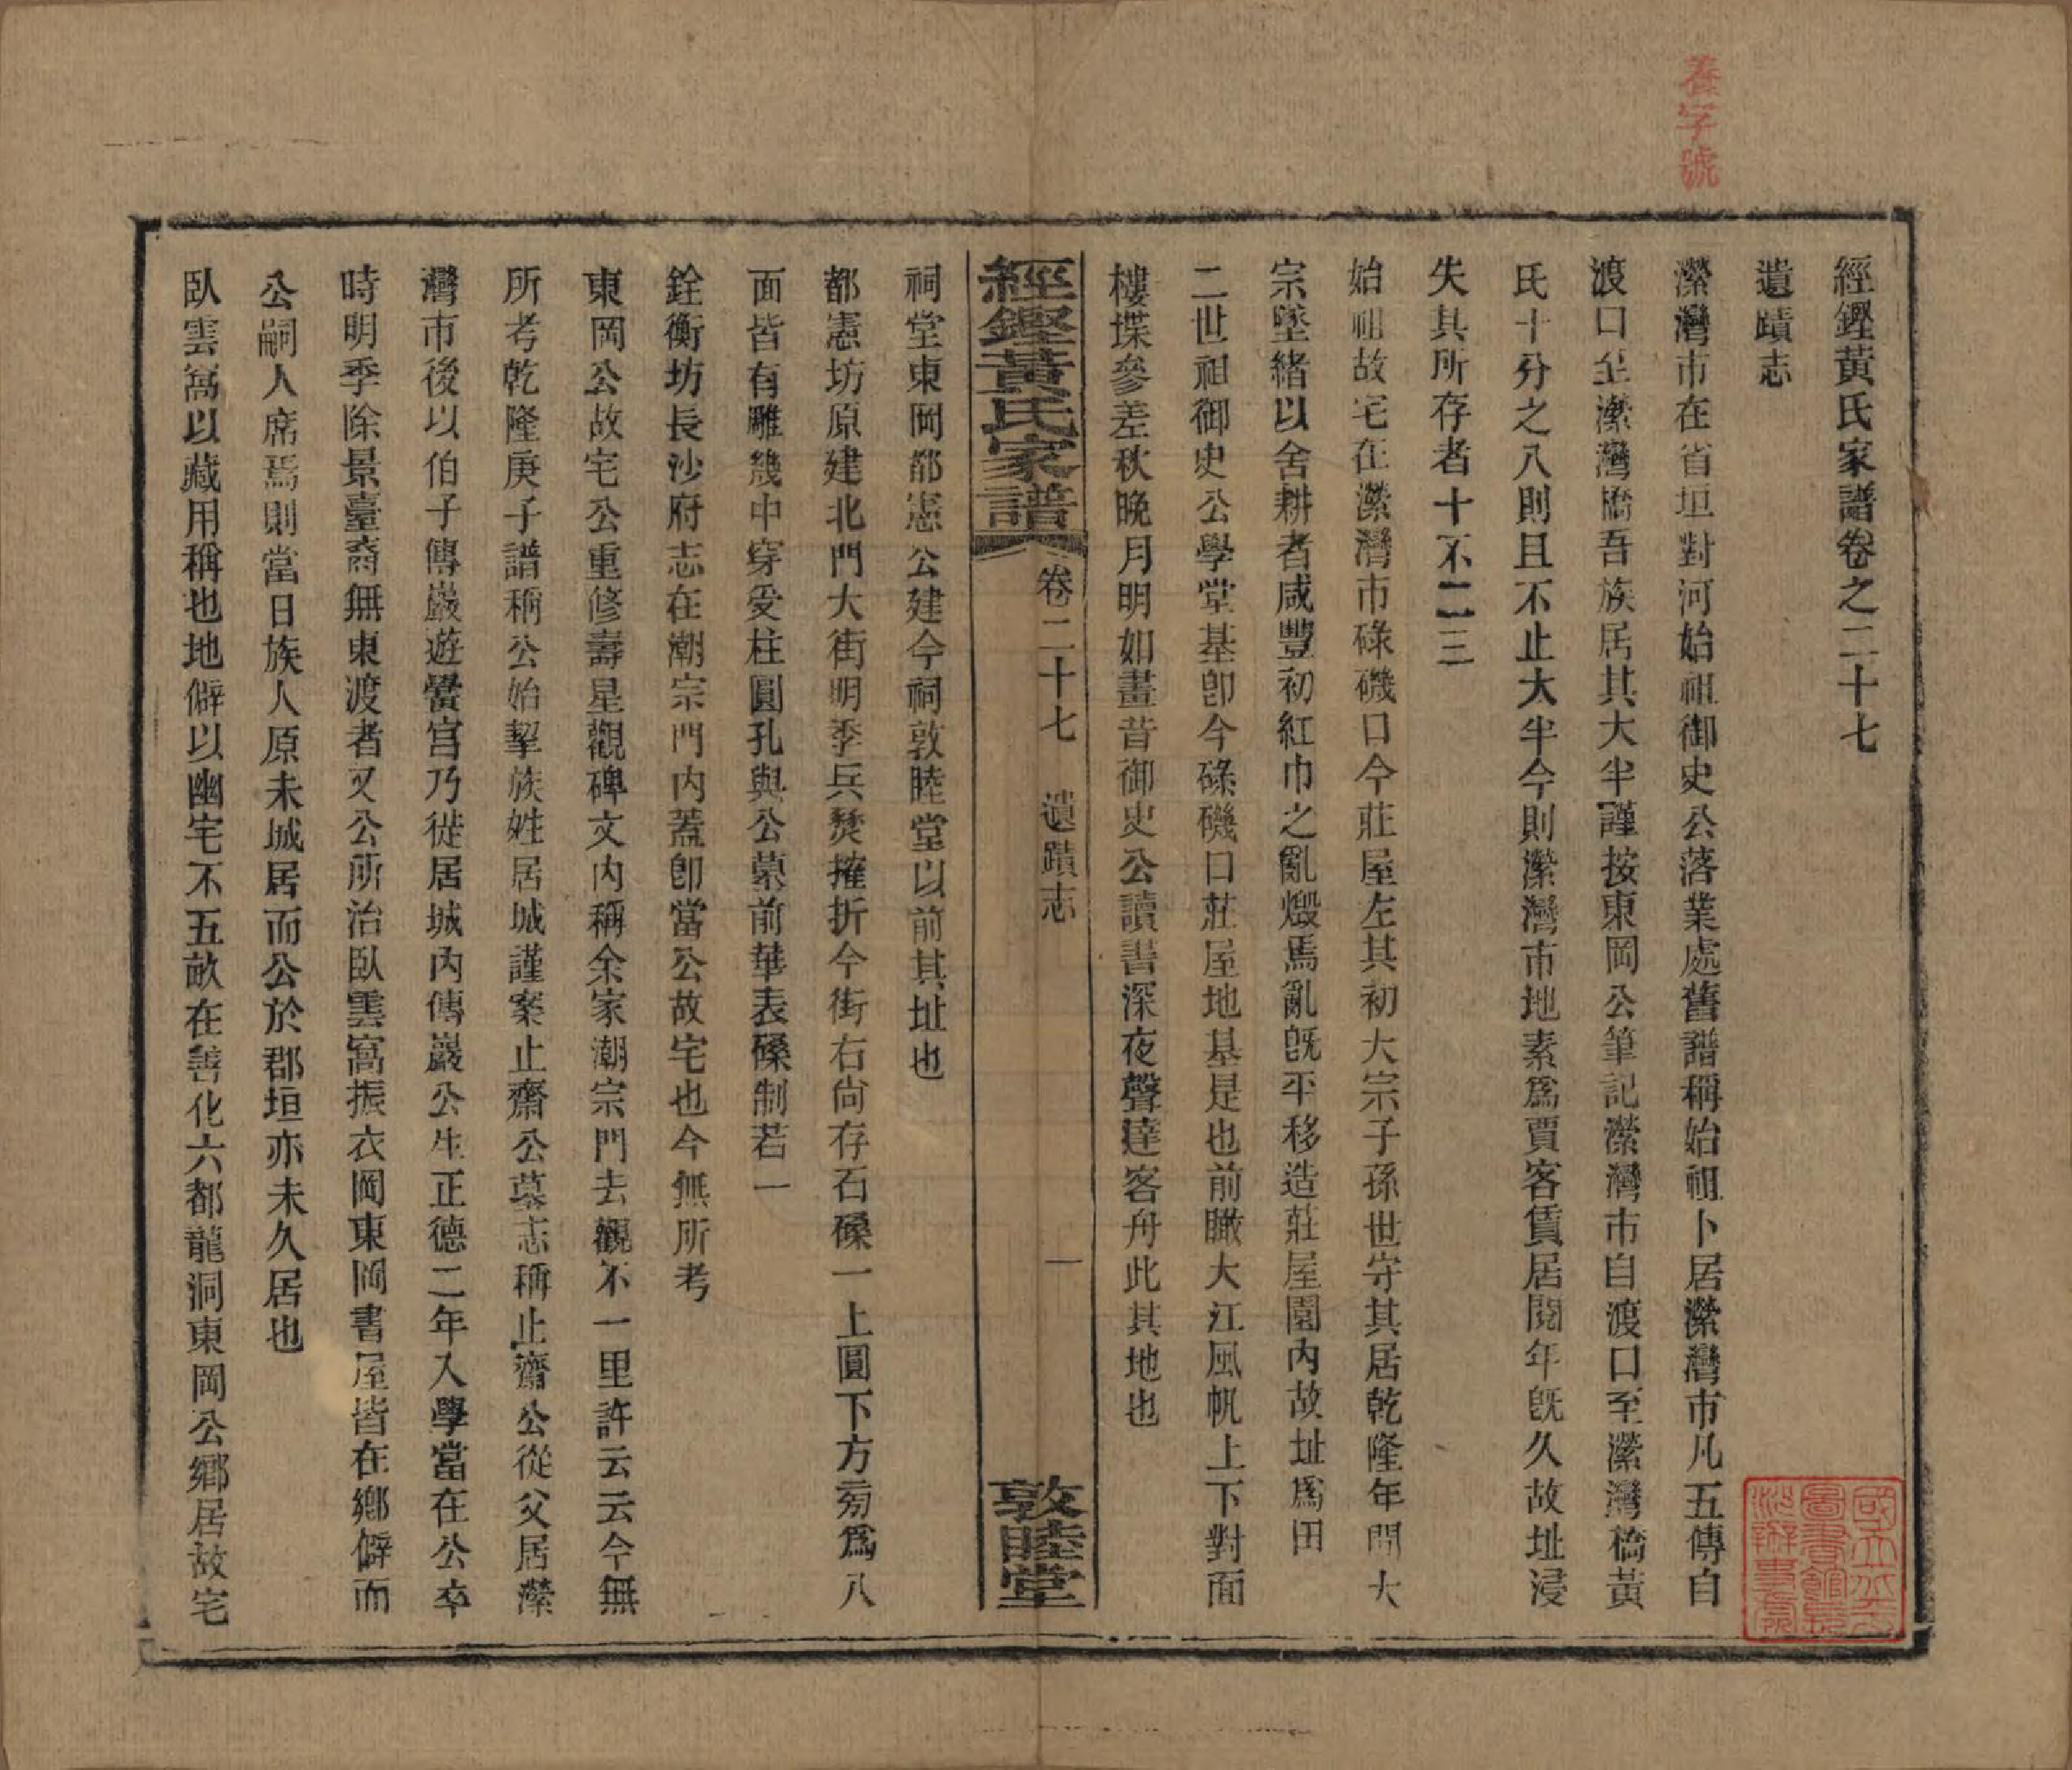 養字號
經鏗黃氏家譜卷之二十七
遺蹟志
濚灣市在省垣對河始祖御史公落業處舊譜稱始祖卜居濚灣市凡五傳自
渡口至濚灣橋吾族居其大半謹按東岡公筆記濚灣市自渡口至濚灣橋黃
氏十分之八則且不止大半今則濚灣市地素爲賈客賃居閱年既久故址浸
失其所存者十不二三
始祖故宅在濚灣市碌磯口今莊屋左其初大宗子孫世守其居乾隆年間大
宗墜緒以舍耕者咸豐初紅巾之亂燬焉亂既平移造莊屋園內故址爲田
二世祖御史公學堂基卽今碌磯口莊屋地基是也前瞰大江風帆上下對面
樓堞參差秋晚月明如畫昔御史公讀書深夜聲達客舟此其地也
經鏗黃氏家譜 卷二十七 遺蹟志 一 敦睦堂
祠堂東岡都憲公建今祠敦睦堂以前其址也
都憲坊原建北門大街明季兵燹摧折今街右尙存石磉一上圓下方旁爲八
面皆有雕幾中穿受柱圓孔與公墓前華表磉制若一
銓衡坊長沙府志在潮宗門內蓋卽當公故宅也今無所考
東岡公故宅公重修壽星觀碑文內稱余家潮宗門去觀不一里許云云今無
所考乾隆庚子譜稱公始挈族姓居城謹案止齋公墓志稱止齋公從父居濚
灣市後以伯子傳巖遊黌宮乃徙居城內傳巖公生正德二年入學當在公卒
時明季除景臺裔無東渡者又公所治臥雲窩振衣岡東岡書屋皆在鄉僻而
公嗣人席焉則當日族人原未城居而公於郡垣亦未久居也
臥雲窩以藏用稱也地僻以幽宅不五畝在善化六都龍洞東岡公鄉居故宅
國立北平
圖書館長
沙辦事處